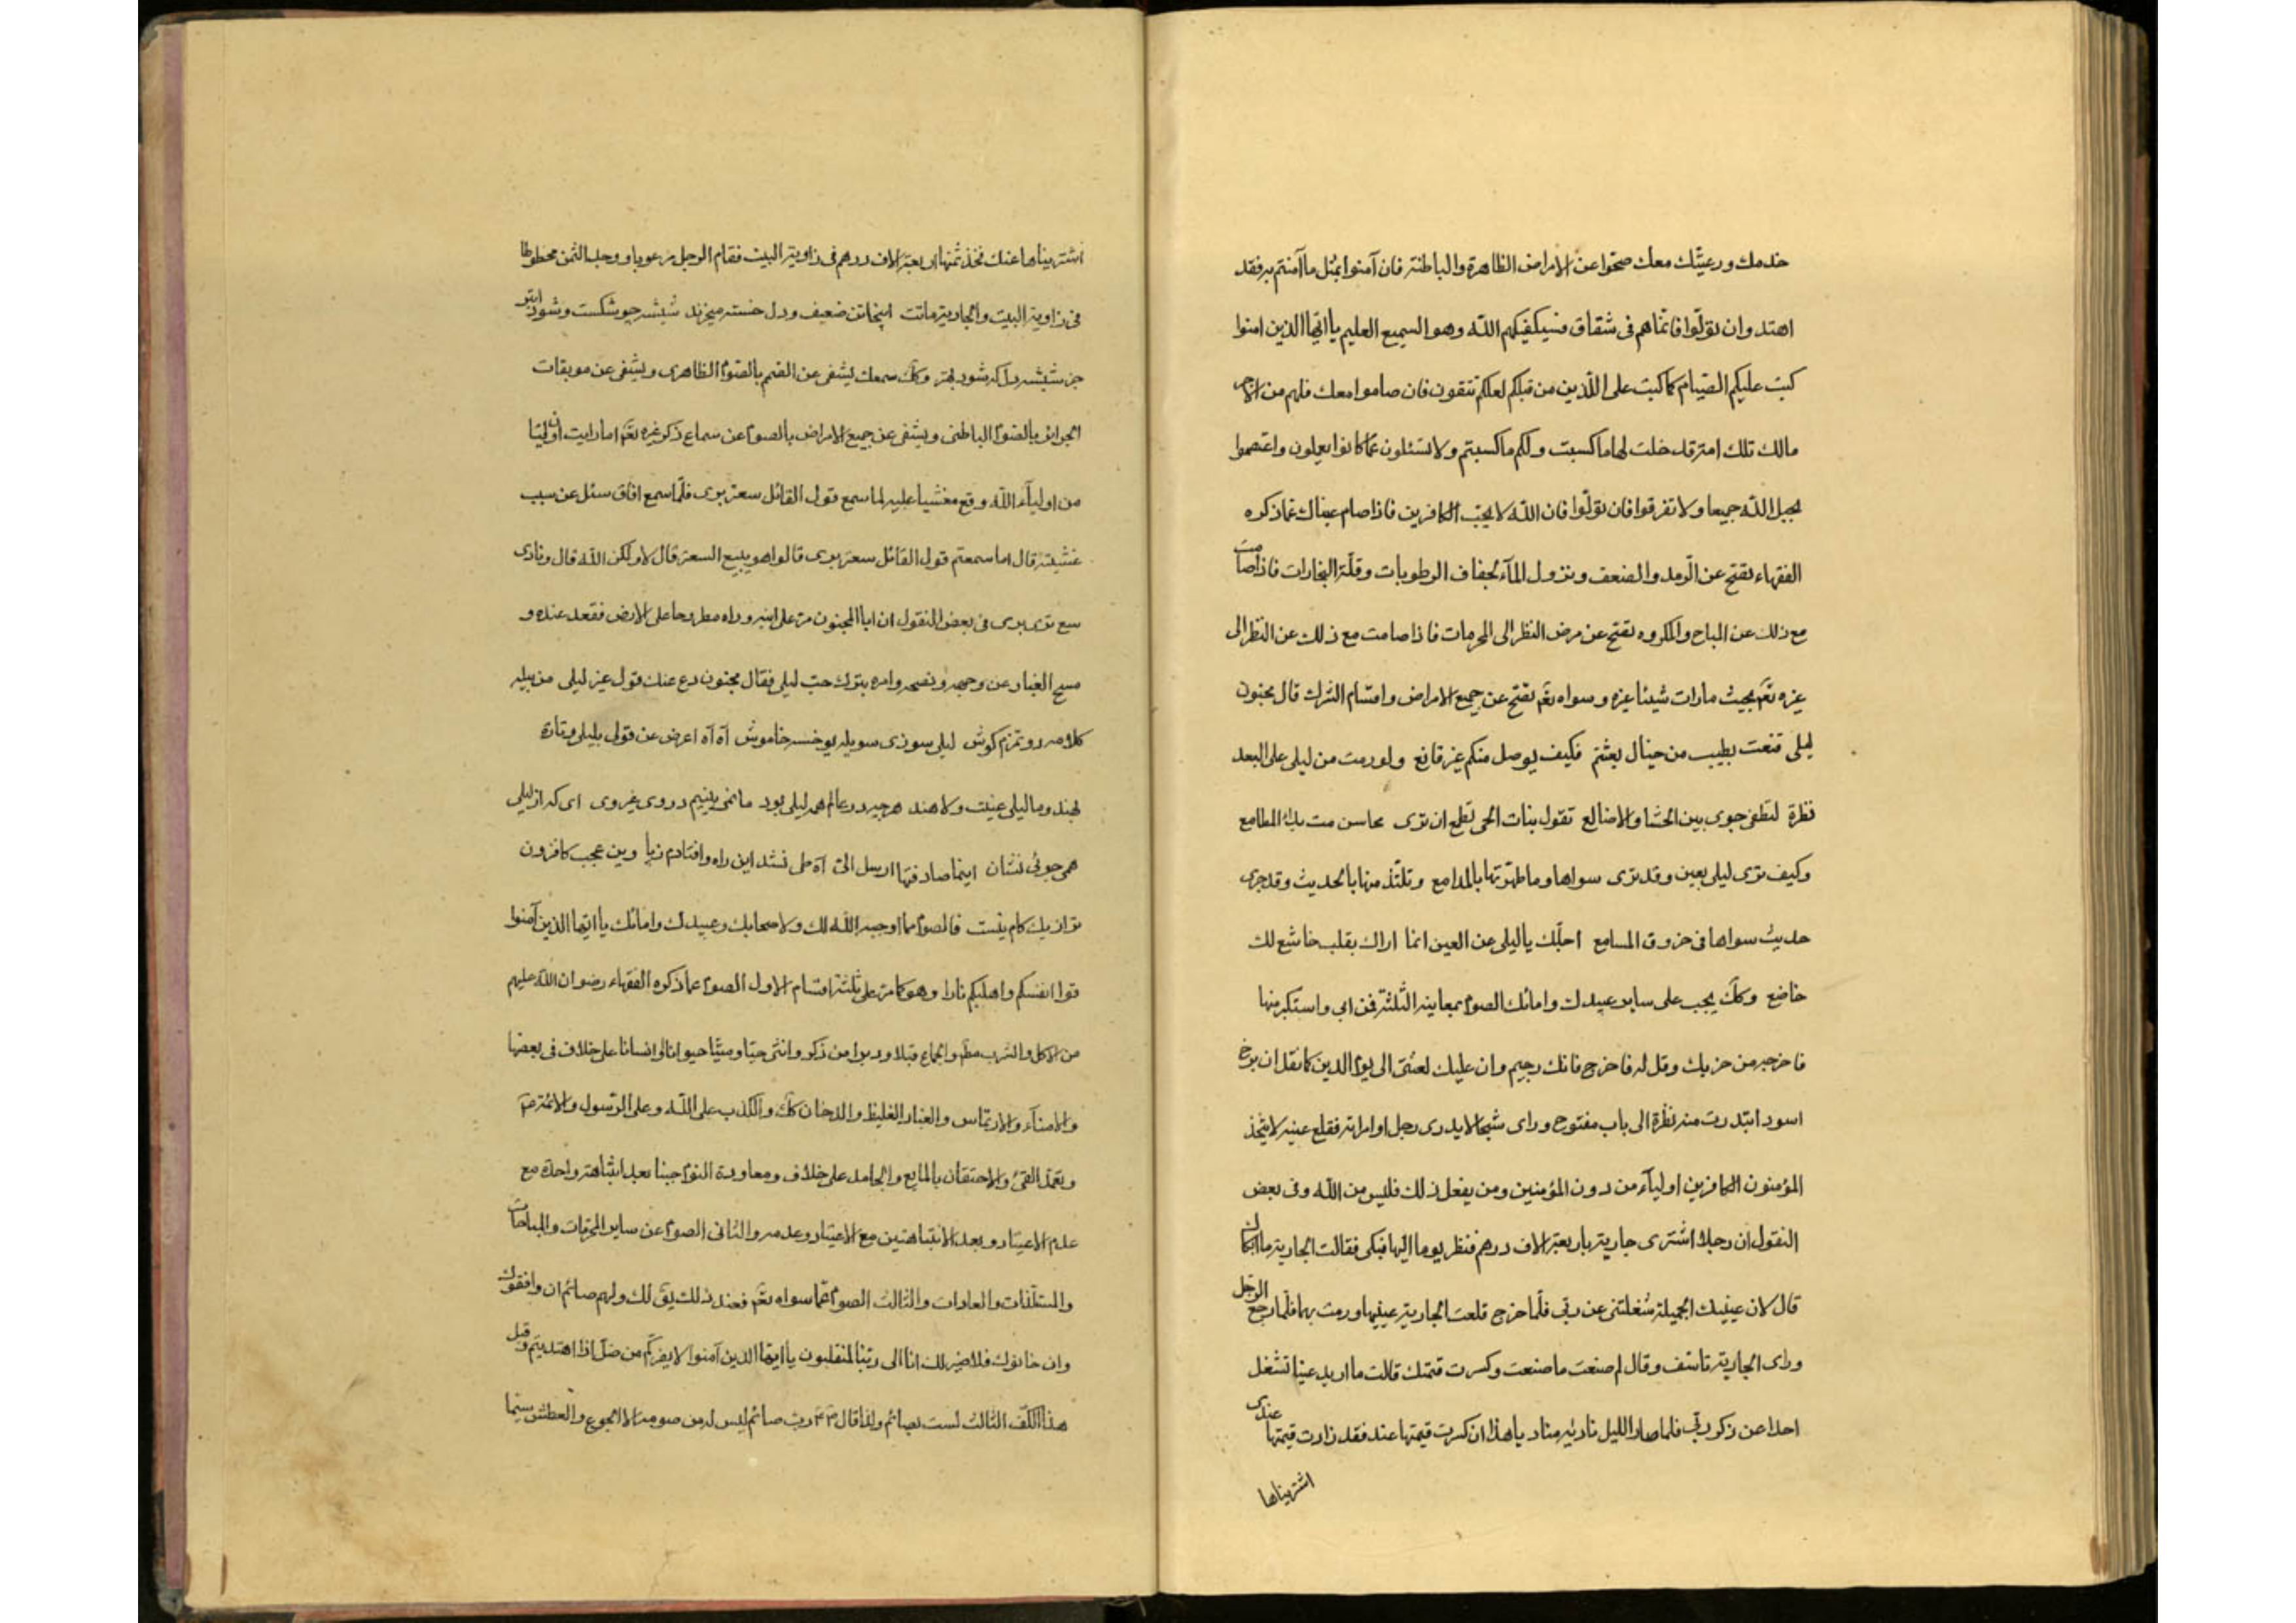 خدمك ورعيتك معك صحوا عن الامراض الظاهرة والباطنة فان آمنوا بمثل ما آمنتم به فقد
اهتدوا وان تولوا فانما هم فى شقاق فسيكفيكهم الله وهو السميع العليم يا ايها الذين امنوا
كتب عليكم الصيام كما كتب على الذين من قبلكم لعلكم تتقون فان صاموا معك فلهم من الاجر
مالك تلك امة قد خلت لها ما كسبت ولكم ما كسبتم ولا تسئلون عما كانوا يعملون واعتصموا
بحبل الله جميعا ولا تفرقوا فان تولوا فان الله لا يحب الكافرين فاذا صام عيناك عما ذكره
الفقهاء تقتح عن الرمد والضعف ونزول الماء لجفاف الرطوبات وقلة البخارات فاذا صامت
مع ذلك عن المباح والمكروه تقتح عن مرض النظر الى المحرمات فاذا صامت مع ذلك عن النظر الى
غيره تعم بحيث مارات شيئا غيره وسواه تعم تقتح عن جميع الامراض واقسام الشرك قال مجنون
ليلى قنعت بطيب من خيال بعثتم فكيف بوصل منكم غير قانع ولو رمت من ليلى على البعد
نظرة لتطفى جوى بين الحشا والاضالع تقول بنات الحى تطمع ان ترى محاسن مت بداء المطامع
وكيف ترى ليلى بعين وقد ترى سواها وما طهرتها بالمدامع وتلتذ منها بالحديث وقد جرى
حديث سواها فى خروق المسامع اجلك يا ليلى عن العين انما اراك بقلب خاشع لك
خاضع وكك يجب على ساير عبيدك وامائك الصوم بمعاينه الثلثة فمن ابى واستكبر منها
فاخرجه من حزبك وقل له فاخرج فانك رجيم وان عليك لعنتى الى يوم الدين كما نقل ان برخ
اسود ابتدرت منه نظرة الى باب مفتوح وراى شبحا لا يدرى رجل او امراته فقلع عينه لا يتخذ
المؤمنون الكافرين اولياء من دون المؤمنين ومن يفعل ذلك فليس من الله وفى بعض
النقول ان رجلا اشترى جارية باربعة الاف درهم فنظر يوما اليها فبكى فقالت الجارية ما ابكاك
قال لان عينيك الجميلة شغلتنى عن ربى فلما خرج قلعت الجارية عينيها ورمت بهما فلما رجع الرجل
وراى الجارية تاسف وقال لم صنعت ما صنعت وكسرت قيمتك قالت ما اريد عينا تشغل
احدا عن ذكر ربى فلما صار الليل نادئه مناد يا هذا ان كسرت قيمتها عند فقد زادت قيمتها عندى
اشتريناها
اشتريناها عنك فخذ ثمنها اربعة الاف درهم فى زاوية البيت فقام الرجل مرعوبا ووجد الثمن محطوطا
فى زاوية البيت والجارية ماتت اينجا تن ضعيف ودل خسته ميخرند شيشه چو شكست وشود ابتر
جز شيشه دل كه شود بهتر وكك سمعك يشفى عن الصمم بالصوم الظاهرى ويشفى عن موبقات
الجرائم بالصوم الباطنى ويشفى عن جميع الامراض بالصوم عن سماع ذكر غيره تعم اما رايت ان وليا
من اولياء الله وقع مغشيا عليه لما سمع قول القائل سعتر برى فلما سمع افاق سئل عن سبب
غشيته قال اما سمعتم قول القائل سعتر برى قالوا هو يبيع السعتر قال لا ولكن الله قال ونادى
سع ترى برى فى بعض النقول ان ابا المجنون مر على ابنه وراه مطروحا على الارض فقعد عنده و
مسح الغبار عن وجهه ونصحه وامره بترك حب ليلى فقال مجنون دع عنك قول غير ليلى
ليلى سوزى سويله يوخسه خاموش آه آه اعرض عن قولى بليلى وتارة
بهند وما ليلى عنيت ولا هند هر چه در عالم همه ليلى بود ما نمى بينيم در وى غير وى اى كه از ليلى
همى جوئى نشان اينما صادفتها ارسل الى آه طى نشد اين راه وافتادم زپا وين عجب كافزون
تو از يك كام نيست فالصوم مما اوجبه الله لك ولاصحابك وعبيدك وامائك يا ايها الذين آمنوا
قوا انفسكم واهليكم نارا وهو كما مر على ثلثة اقسام الاول الصوم عما ذكره الفقهاء رضوان الله عليهم
من الاكل والشرب مطم والجماع قبلا ودبرا من ذكر وانثى حيا وميتا حيوانا او انسانا على خلاف فى بعضها
والامناء والارتماس والغبار الغليظ والدخان كك والكذب على الله وعلى الرسول والائمة عم
وتعمد القئ والاحتقان بالمايع والجامد على خلاف ومعاودة النوم جنبا بعد انتباهة واحدة مع
عدم الاعتياد وبعد الانتباهتين مع الاعتياد وعدمه والثانى الصوم عن ساير المحرمات والمباحات
والمستلذات والعادات والثالث الصوم عما سواه تعم فعند ذلك يق لك ولهم صائم ان وافقوك
وان خانوك فلا ضير لك انا الى ربنا لمنقلبون يا ايها الذين آمنوا لا يضركم من ضل اذا اهتديتم وقبل
هذا الكف الثالث لست بصائم ولذا قال رب صائم ليس له من صومه الا الجوع والعطش سيما